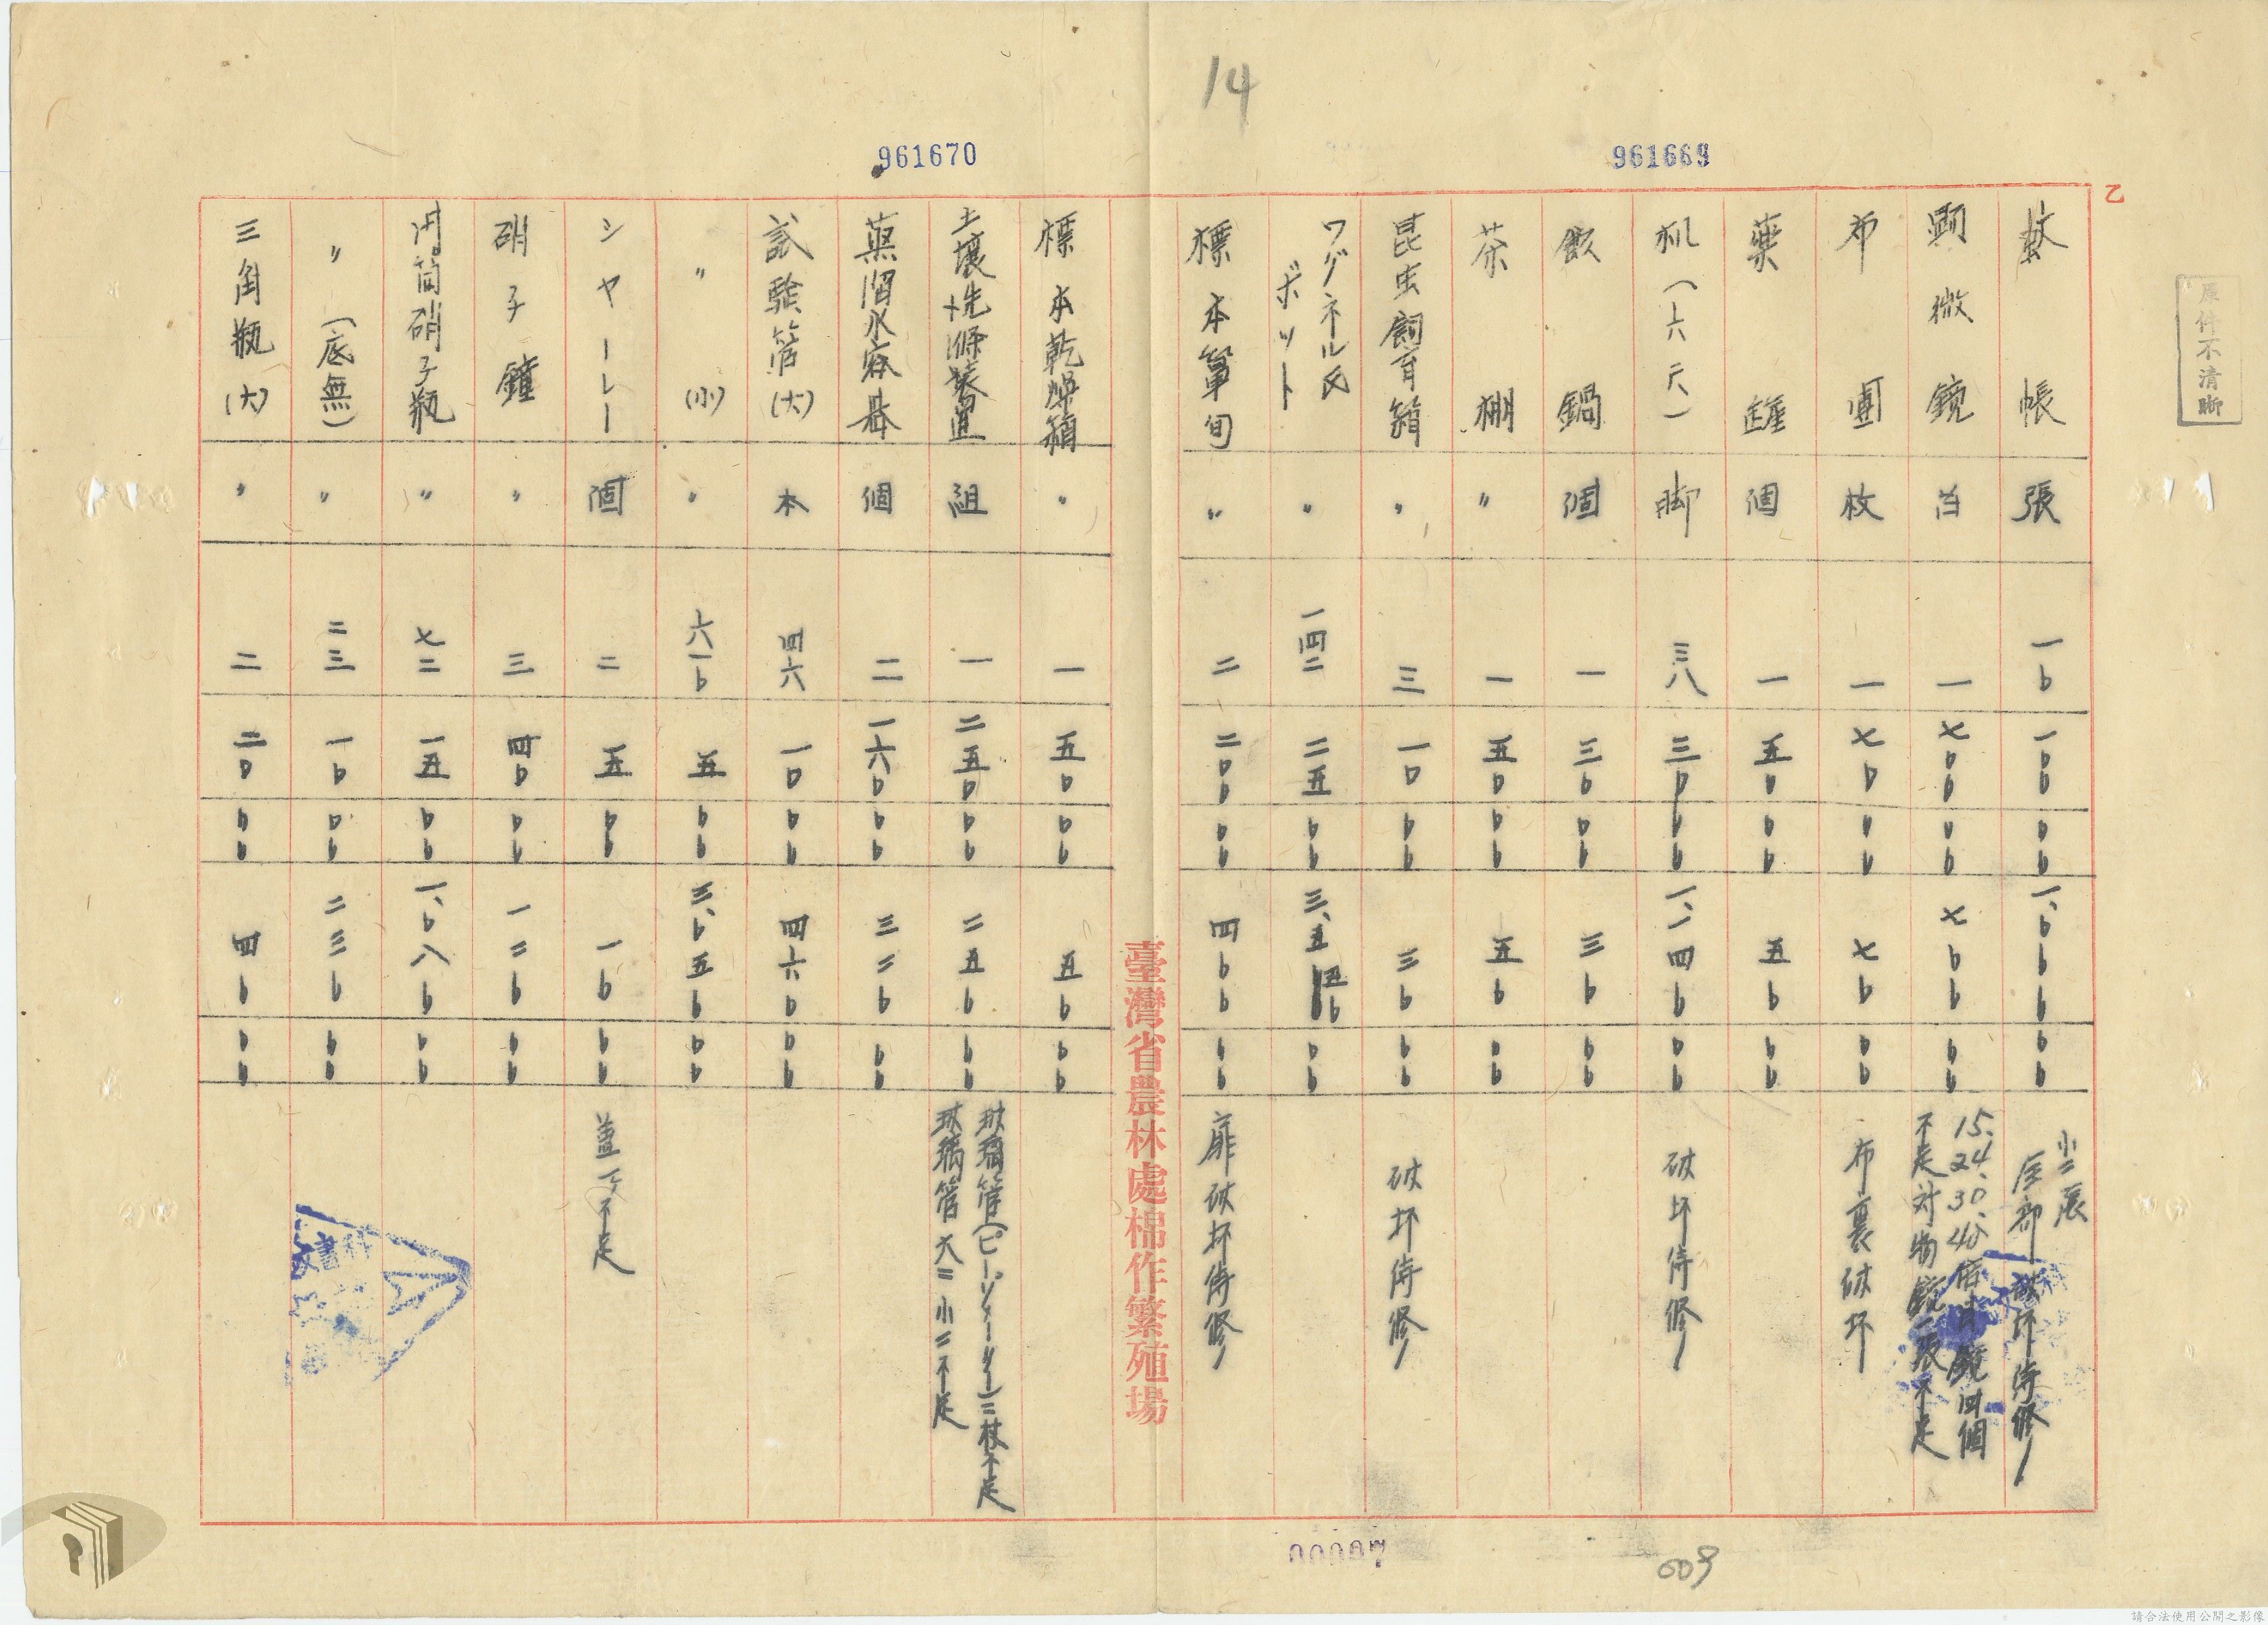 14
961669
961670
乙
原件不清晰
蚊帳 張 一〇 一〇〇 〇〇 一、〇〇〇 〇〇 小二張 全部破坏待修
顕微鏡 台 一 七〇〇 〇〇 七〇〇 〇〇 15、24、30、40、倍対鏡四個 不足対物鏡一張不足
布團 枚 一 七〇 〇〇 七〇 〇〇 布裏破坏
藥鑵 個 一 五〇 〇〇 五〇 〇〇
机(六尺) 脚 三八 三〇 〇〇 一、一四〇 〇〇 破坏待修
飯鍋 個 一 三〇 〇〇 三〇 〇〇
茶棚 〃 一 五〇 〇〇 五〇 〇〇
昆虫飼育箱 〃 三 一〇 〇〇 三〇 〇〇 破坏待修
ワグネル氏ポット 〃 一四二 二五 〇〇 三、五五〇 〇〇
標本簞旬 〃 二 二〇〇 〇〇 四〇〇 〇〇 扉破坏待修
臺灣省農林處棉作繁殖場
標本乾燥箱 〃 一 五〇 〇〇 五〇 〇〇
土壤洗滌装置 組 一 二五〇 〇〇 二五〇 〇〇 玻璃管(ピーツァーリー)二枝不足 玻璃管大二小二不足
蒸溜水容器 個 二 一六〇 〇〇 三二〇 〇〇
試驗管(大) 本 四六 一〇 〇〇 四六〇 〇〇
〃(小) 〃 六一〇 五 〇〇 三、〇五〇 〇〇
シヤーレー 個 二 五 〇〇 一〇 〇〇 蓋一ケ不足
硝子鐘 〃 三 四〇 〇〇 一二〇 〇〇
円筒硝子瓶 〃 七二 一五 〇〇 一、〇八〇 〇〇
〃(底無) 〃 二三 一〇 〇〇 二三〇 〇〇
三角瓶(大) 〃 二 二〇 〇〇 四〇 〇〇
00087
609
請合法使用公開之影像